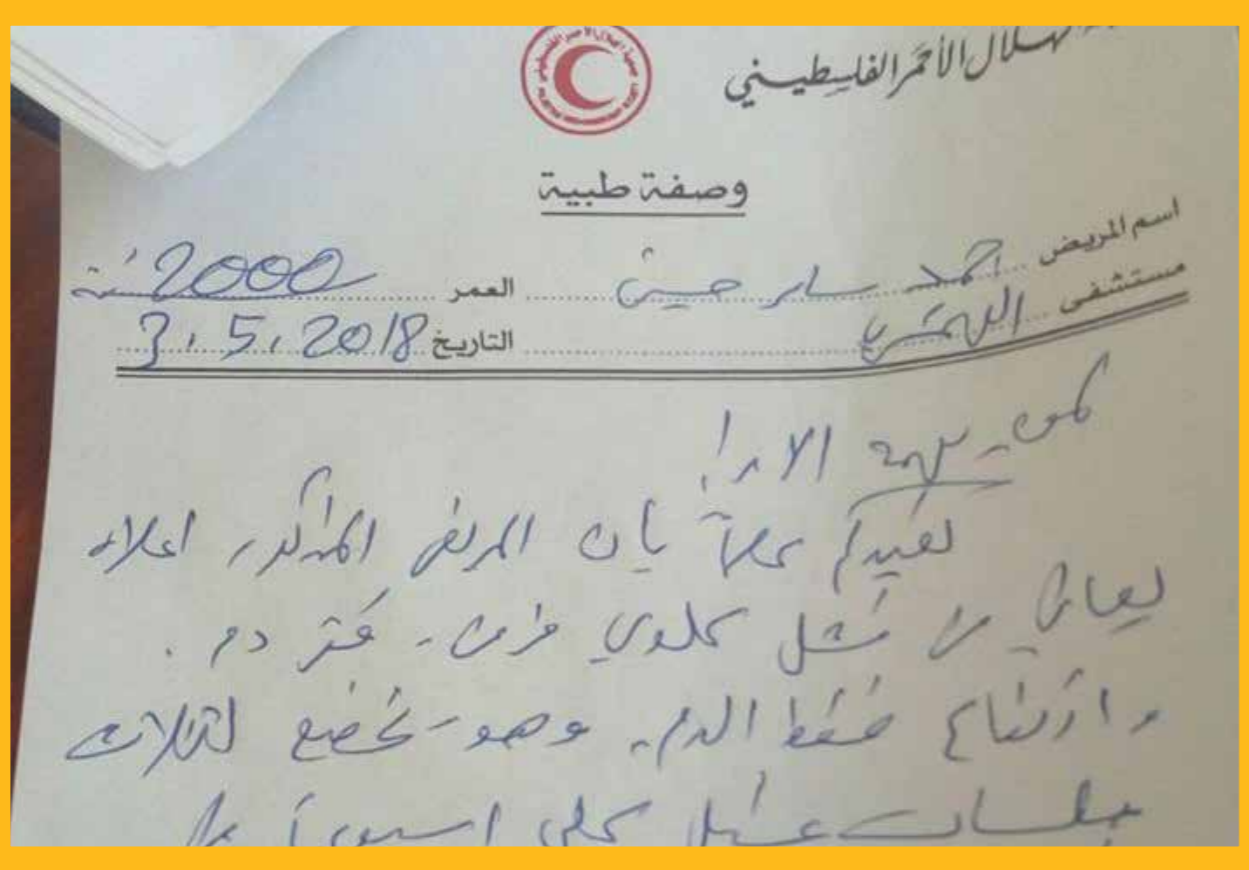 الهلال الأحمر الفلسطيني
وصفة طبية
اسم المريض أحمد سامر حسين العمر 2000 سنة
مستشفى التاريخ 3.5.2018
لمن يهمه الامر
نفيدكم علماً بان المريض المذكور اعلاه
يعاني من فشل كلوي مزمن، فقر دم.
وارتفاع ضغط الدم، وهو يخضع لثلاث
جلسات غسيل كلى اسبوعياً